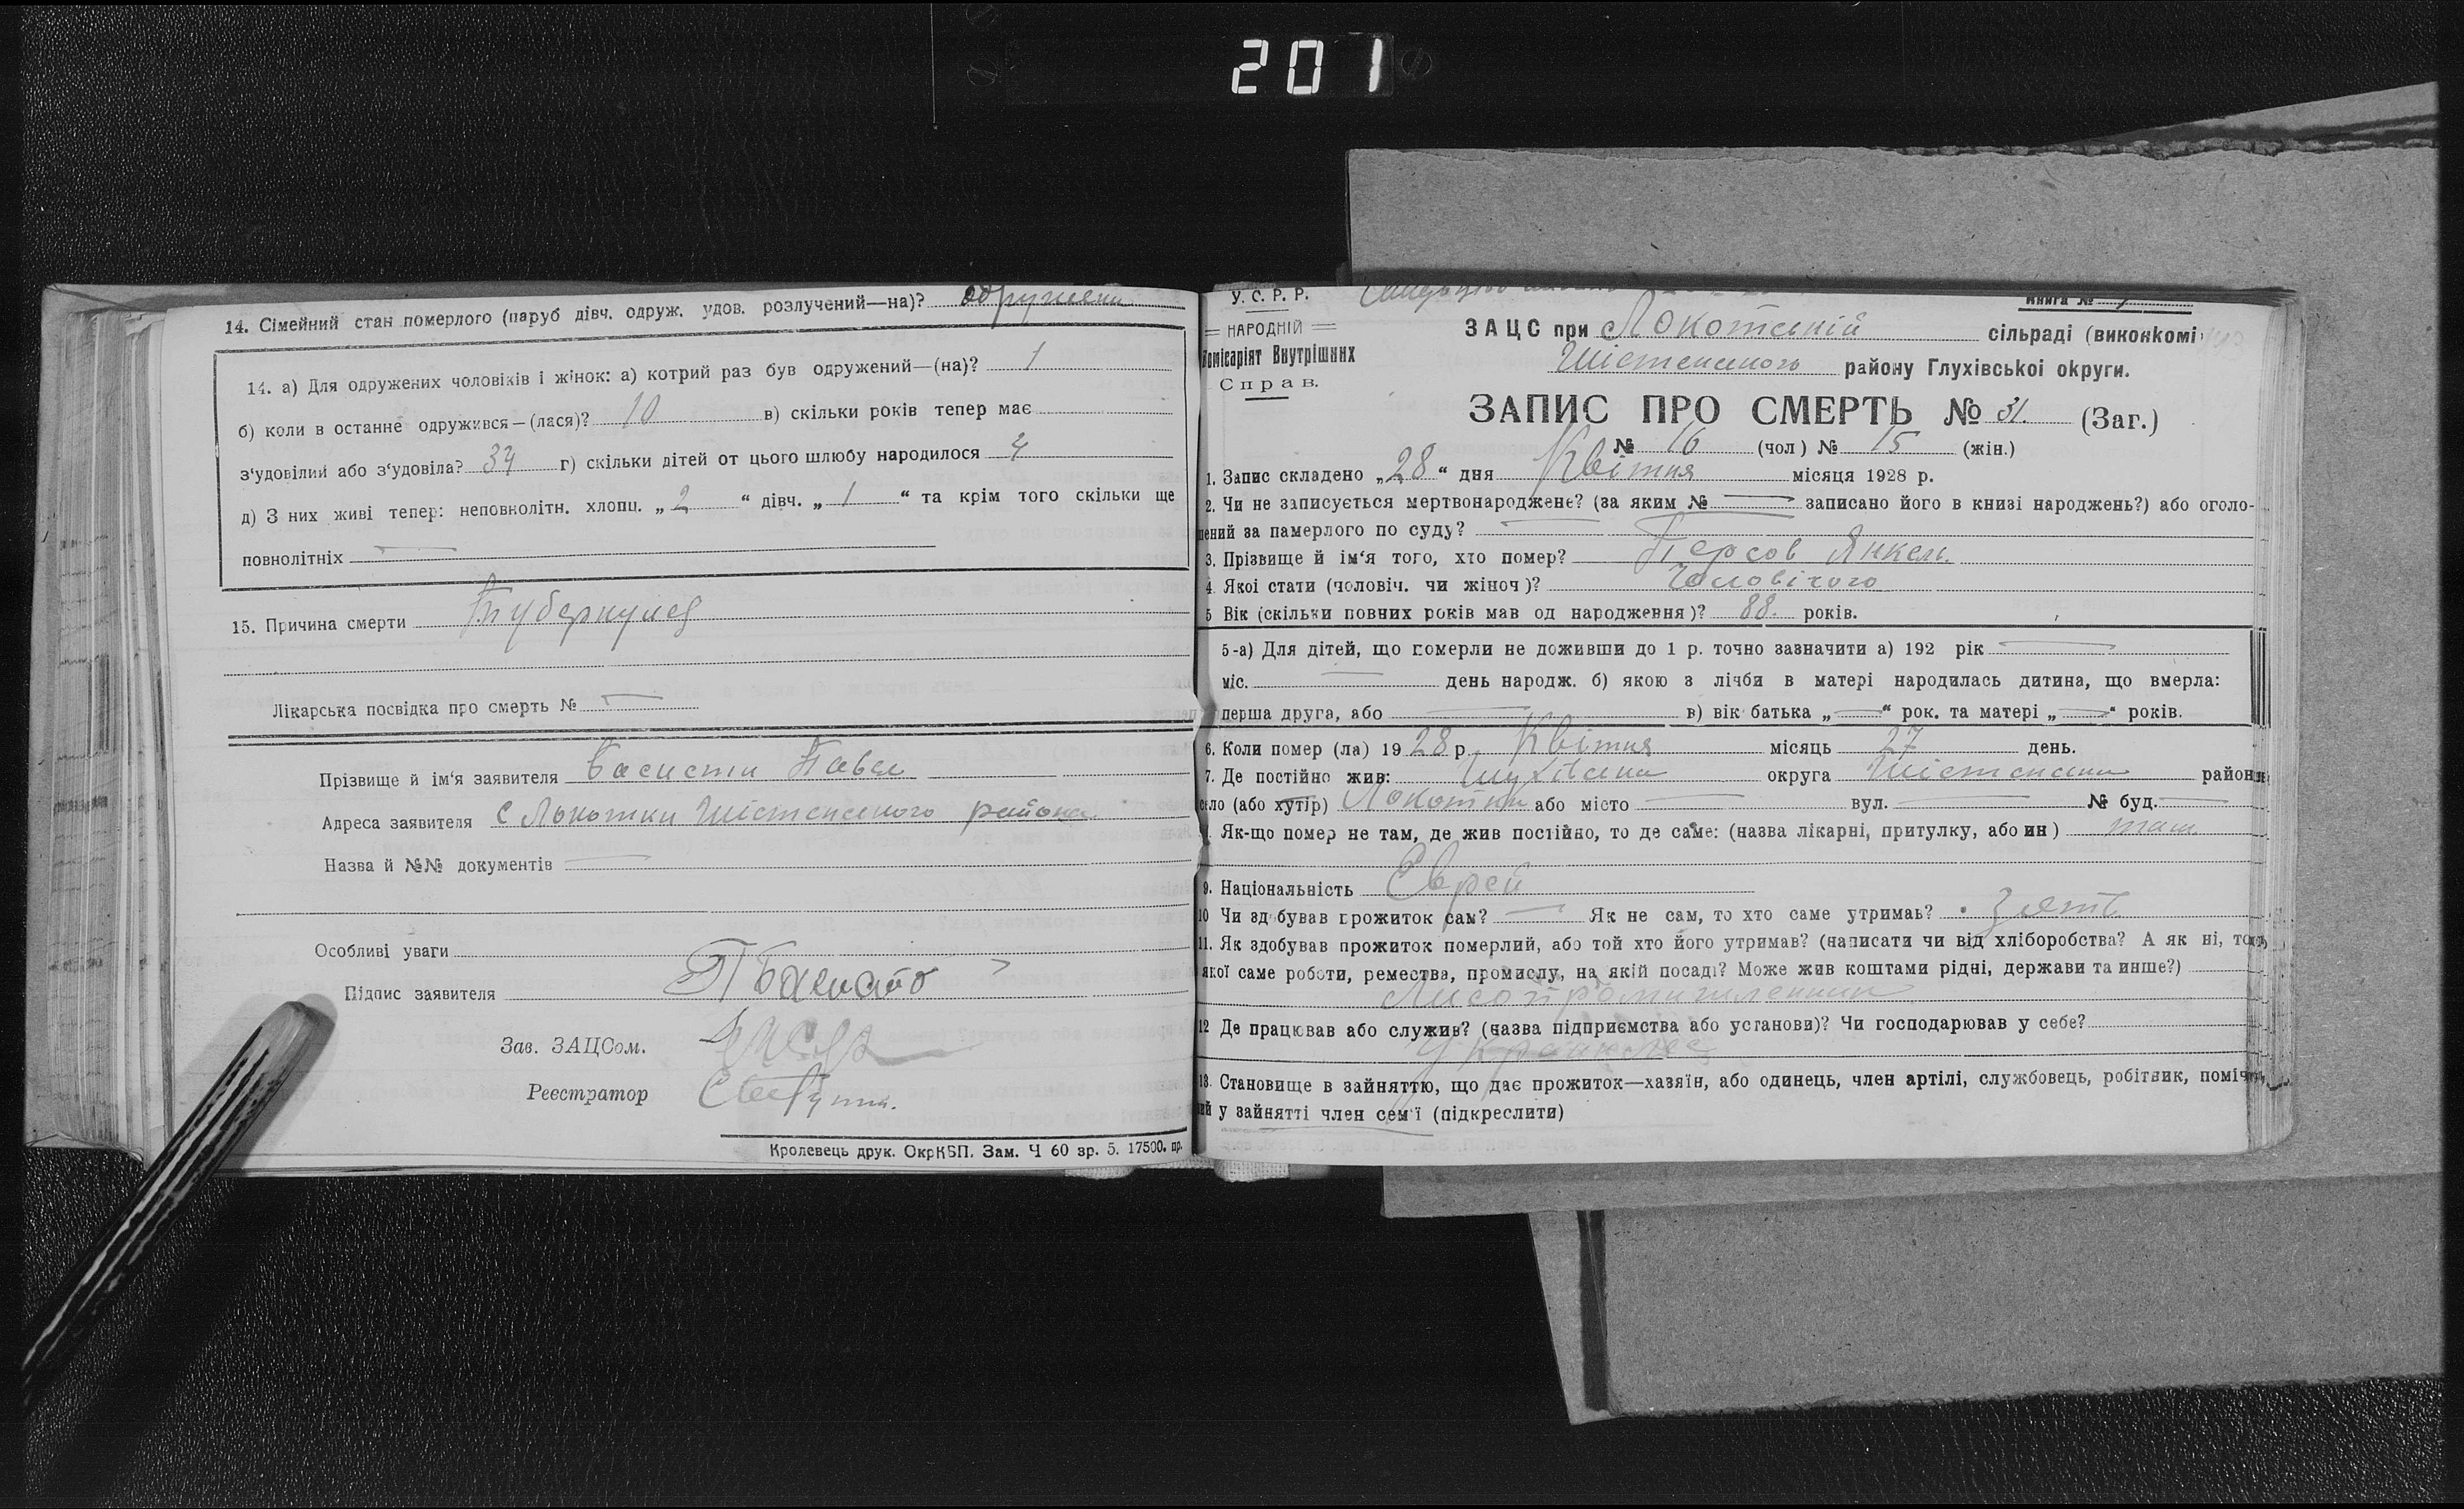 201
14. Сімейний стан померлого (паруб дівч. одруж. удов. розлучений—на)? одружени
14. а) Для одружених чоловіків і жінок: а) котрий раз був одружений—(на)? 1
б) коли в останнє одружився—(лася)? 10 в) скільки років тепер має
з'удовілий або з'удовіла? 34 г) скільки дітей от цього шлюбу народилося 4
д) З них живі тепер: неповнолітн. хлопц. „ 2 “ дівч. „ 1 “ та крім того скільки ще
повнолітніх
15. Причина смерти Туберкульоз
Лікарська посвідка про смерть №
Прізвище й ім'я заявителя Басисти Павел
Адреса заявителя с Локотки Шістенсгого района
Назва й №№ документів
Особливі уваги
Підпис заявителя П Басисто
Зав. ЗАЦСом.
Реестратор
Кролевець друк. ОкрКБП. Зам. Ч 60 зр. 5. 17500. пр.
У. С. Р. Р.
Книга №
НАРОДНІЙ
Комісаріят Внутрішних
Справ.
ЗАЦС при Локотській сільраді (виконкомі
Шістенсного району Глухівської округи.
ЗАПИС ПРО СМЕРТЬ № 31. (Заг.)
№ 16 (чол) № 15 (жін.)
1. Запис складено „28“ дня Квітня місяця 1928 р.
2. Чи не записується мертвонароджене? (за яким № записано його в книзі народжень?) або оголо-
шений за памерлого по суду?
3. Прізвище й ім'я того, хто помер? Персов Янкель
4. Якої стати (чоловіч. чи жіноч)? Чоловічого
5 Вік (скільки повних років мав од народження)? 88. років.
5-а) Для дітей, що померли не доживши до 1 р. точно зазначити а) 192 рік
міс. день народж. б) якою з лічби в матері народилась дитина, що вмерла:
перша друга, або в) вік батька „ “ рок. та матері „ “ років.
6. Коли помер (ла) 1928 р. Квітня місяць 27 день.
7. Де постійно жив: Глухівська округа Шістенсни район
село (або хутір) Локотки або місто вул. № буд.
Як-що помер не там, де жив постійно, то де саме: (назва лікарні, притулку, або ин) там
9. Національність Єврей
10 Чи здобував прожиток сам? Як не сам, то хто саме утримав? Зять
11. Як здобував прожиток померлий, або той хто його утримав? (написати чи від хліборобства? А як ні, то з
якої саме роботи, ремества, промислу, на якій посаді? Може жив коштами рідні, держави та инше?)
Лисопромишленник
12 Де працював або служив? (назва підприємства або установи)? Чи господарював у себе?
13. Становище в зайняттю, що дає прожиток—хазяїн, або одинець, член артілі, службовець, робітник, поміч-
ний у зайнятті член сем'ї (підкреслити)